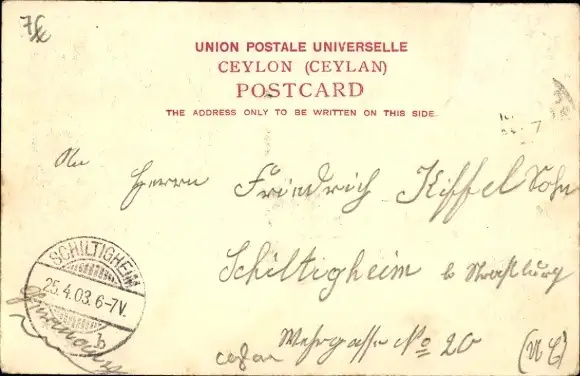 UNION POSTALE UNIVERSELLE
CEYLON (CEYLAN)
POSTCARD
THE ADDRESS ONLY TO BE WRITTEN ON THIS SIDE.
An Herrn Friedrich Kiffel Sohn
Schiltigheim b Straßburg
Wehrgasse No 20
SCHILTIGHEIM
25.4.03.6-7V.
b
Germany
Ceylan